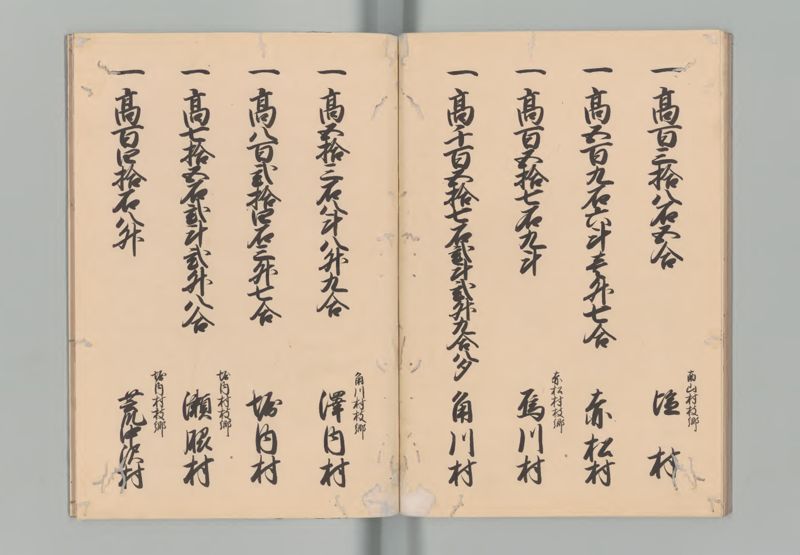 一高百三拾八石五合
南山村枝郷
塩村
一高五百九石六斗壱升七合
赤松村
一高百五拾七石九斗
赤松村枝郷
烏川村
一高千百五拾七石弐斗弐升九合八夕
角川村
一高五拾三石八斗八升九合
角川村枝郷
澤内村
一高八百弐拾四石三升七合
堀内村
一高七拾五石弐斗弐升八合
堀内村枝郷
瀬脇村
一高百四拾石八升
堀内村枝郷
村